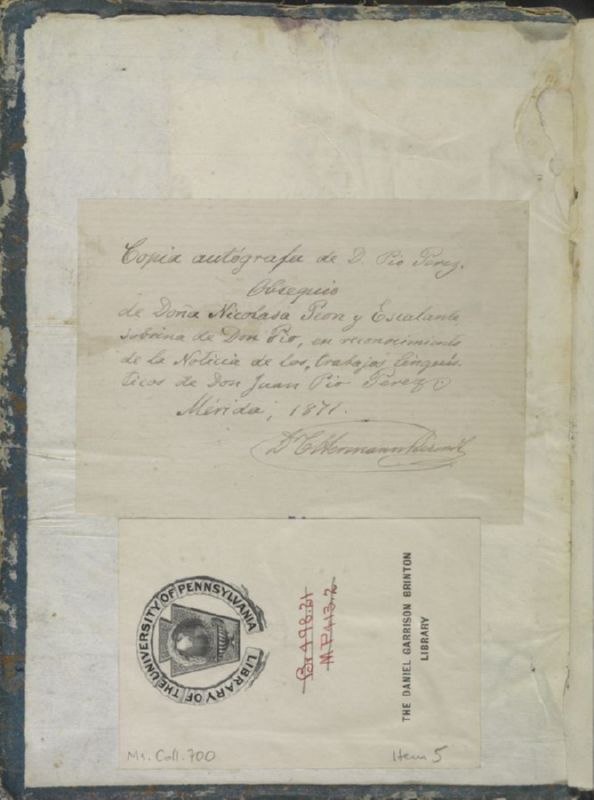 Copia autógrafa de D. Pio Perez.
Obsequio
de Doña Nicolasa Peon y Escalante
sobrina de Don Pio, en reconocimiento
de la Noticia de los trabajos linguis-
ticos de Don Juan Pio Perez
Mérida, 1871.
Dr C Hermann Berendt
LIBRARY OF THE UNIVERSITY OF PENNSYLVANIA
498.21
THE DANIEL GARRISON BRINTON
LIBRARY
Ms. Coll. 700
Item 5